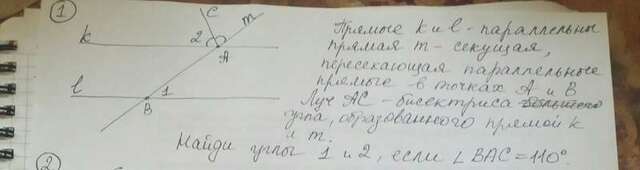 1
C
m
k
2
A
l
1
B
Прямые k и l - параллельны
прямая m - секущая,
пересекающая параллельные
прямые в точках A и B
Луч AC - биссектриса большего
угла, образованного прямой k
и m.
Найди углы 1 и 2, если ∠BAC = 110°.
2